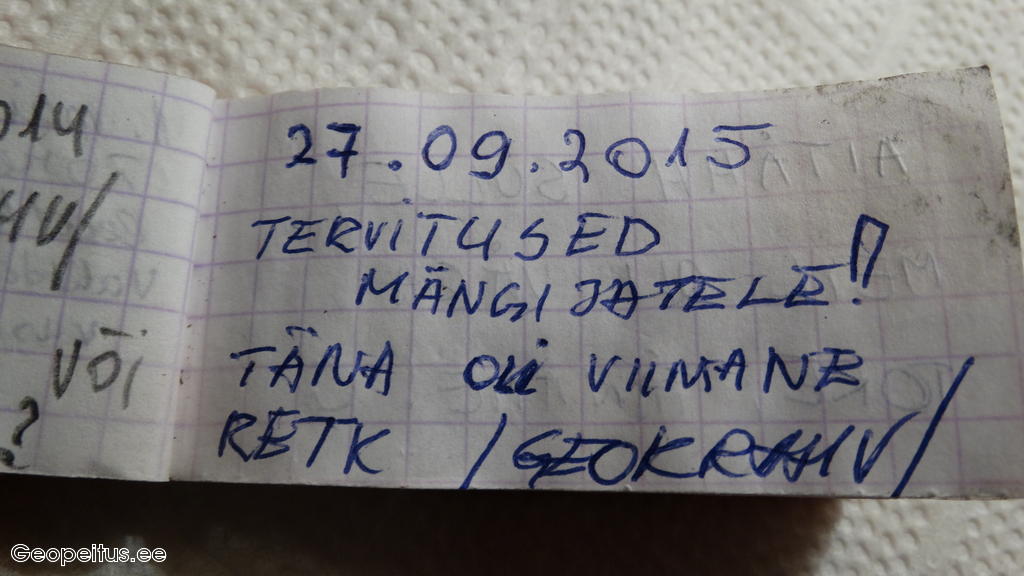 014
HV/
VÕI
?
27.09.2015
TERVITUSED
MÄNGIJATELE!
TÄNA OLI VIIMANE
RETK /GEOKRAHV/
Geopeitus.ee